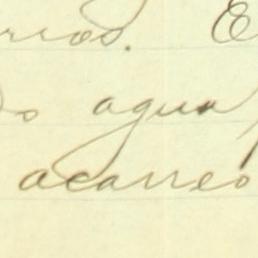 rios. E
do agua
acarreo